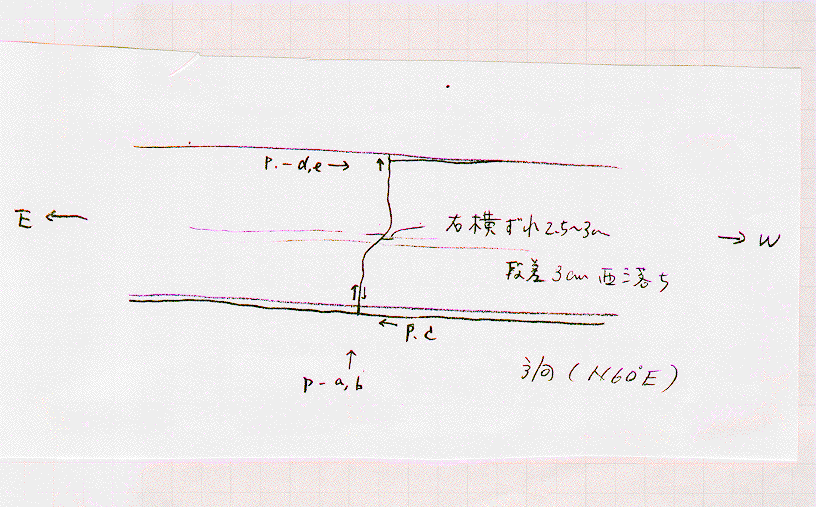 P.-d,e →
E ←
右横ずれ2.5~3cm
→ W
段差3cm西落ち
← P.c
↑
P-a,b
(N60°E)